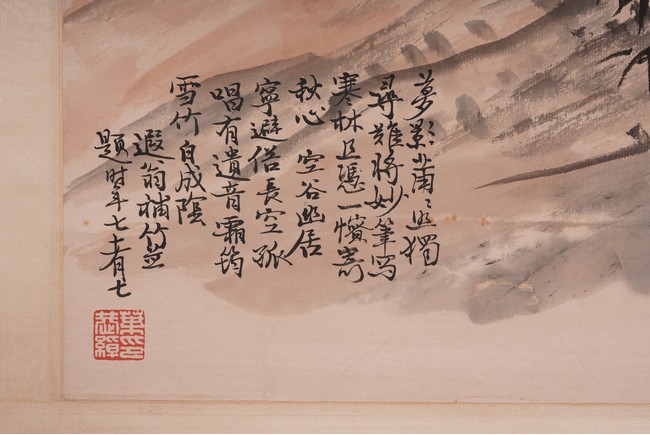 夢影瀟〻獨
尋難將妙筆寫
寒林且憑一幀寄
秋心 空谷幽居
寧避俗長空孤
唱有遺音霜筠
雪竹自成陰
遐翁補竹並
題時年七十有七
葉印
恭綽